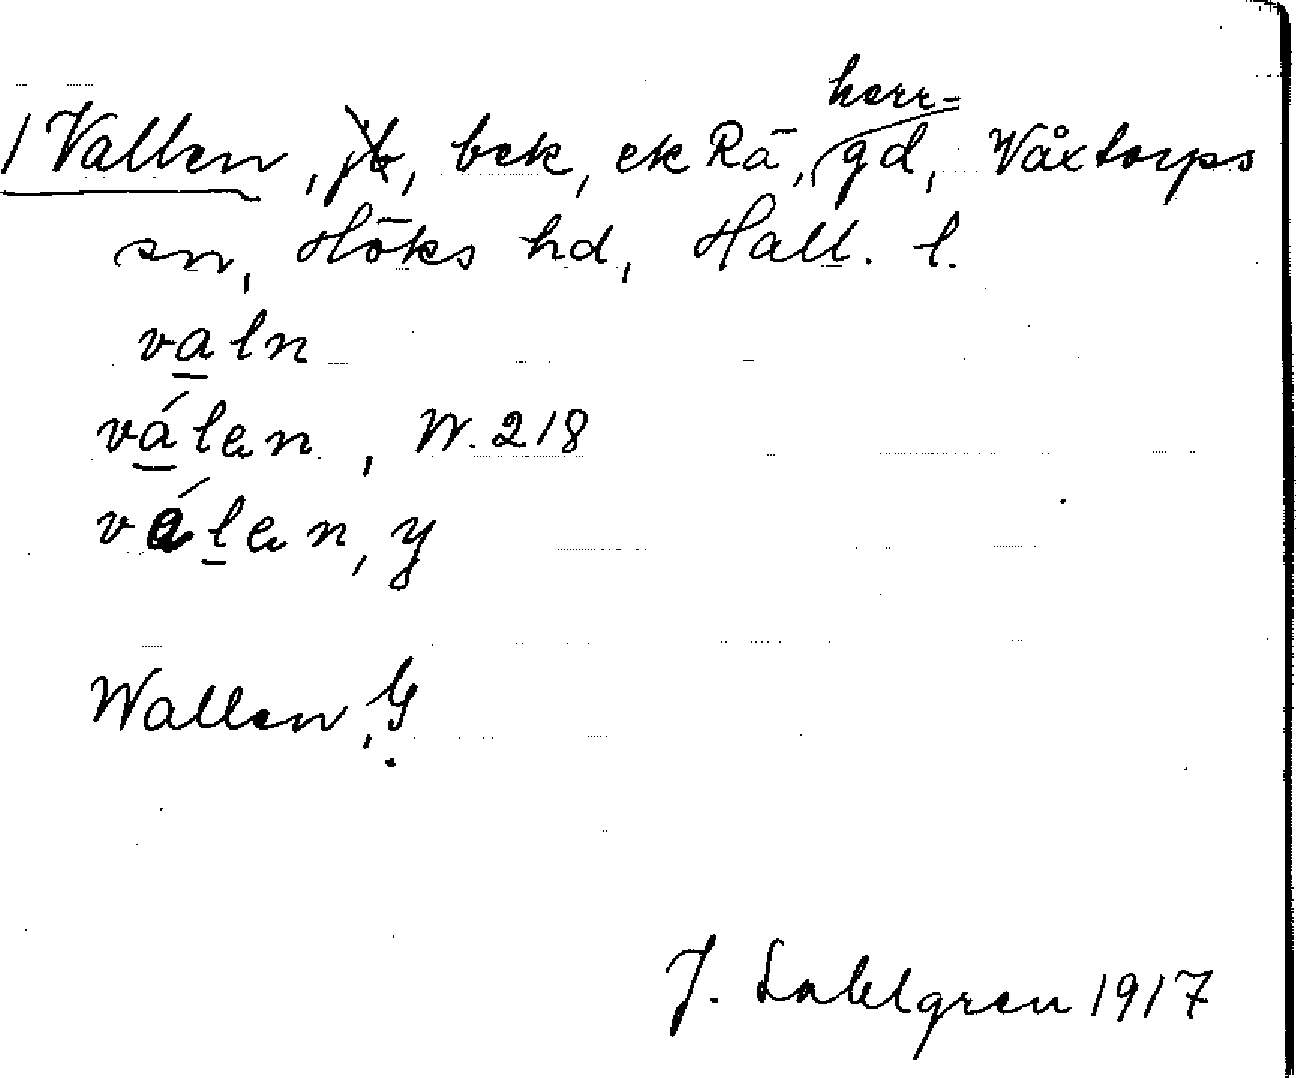 1 Vallen, bek, ek Rä, herr=gd, Våxtorps
sn, Höks hd, Hall. l.
valn
válen, W. 218
válen, y
Wallen, G
J. Sahlgren 1917